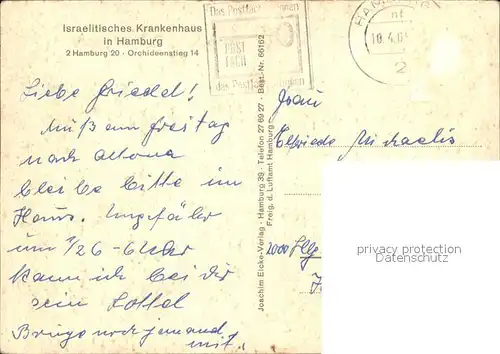 Israelitisches Krankenhaus
in Hamburg
2 Hamburg 20 · Orchideenstieg 14
Das Postfach
POST
FACH
das Postfach
HAMBURG
nt
10.4.6
2
Liebe Friedel!
Muß am Freitag
nach Altona
bleibe bitte im
Haus. Ungefähr
um 1/2 6 - 6 Uhr
kann ich bei dir
sein
Bringe noch jemand
mit.
Joachim Eicke-Verlag · Hamburg 39 · Telefon 27 69 27 · Best.-Nr. 66162
Freig. d. Luftamt Hamburg
Frau
Elfriede Michaelis
2000 Hbg
privacy protection
www.ansichtskartenversand.com